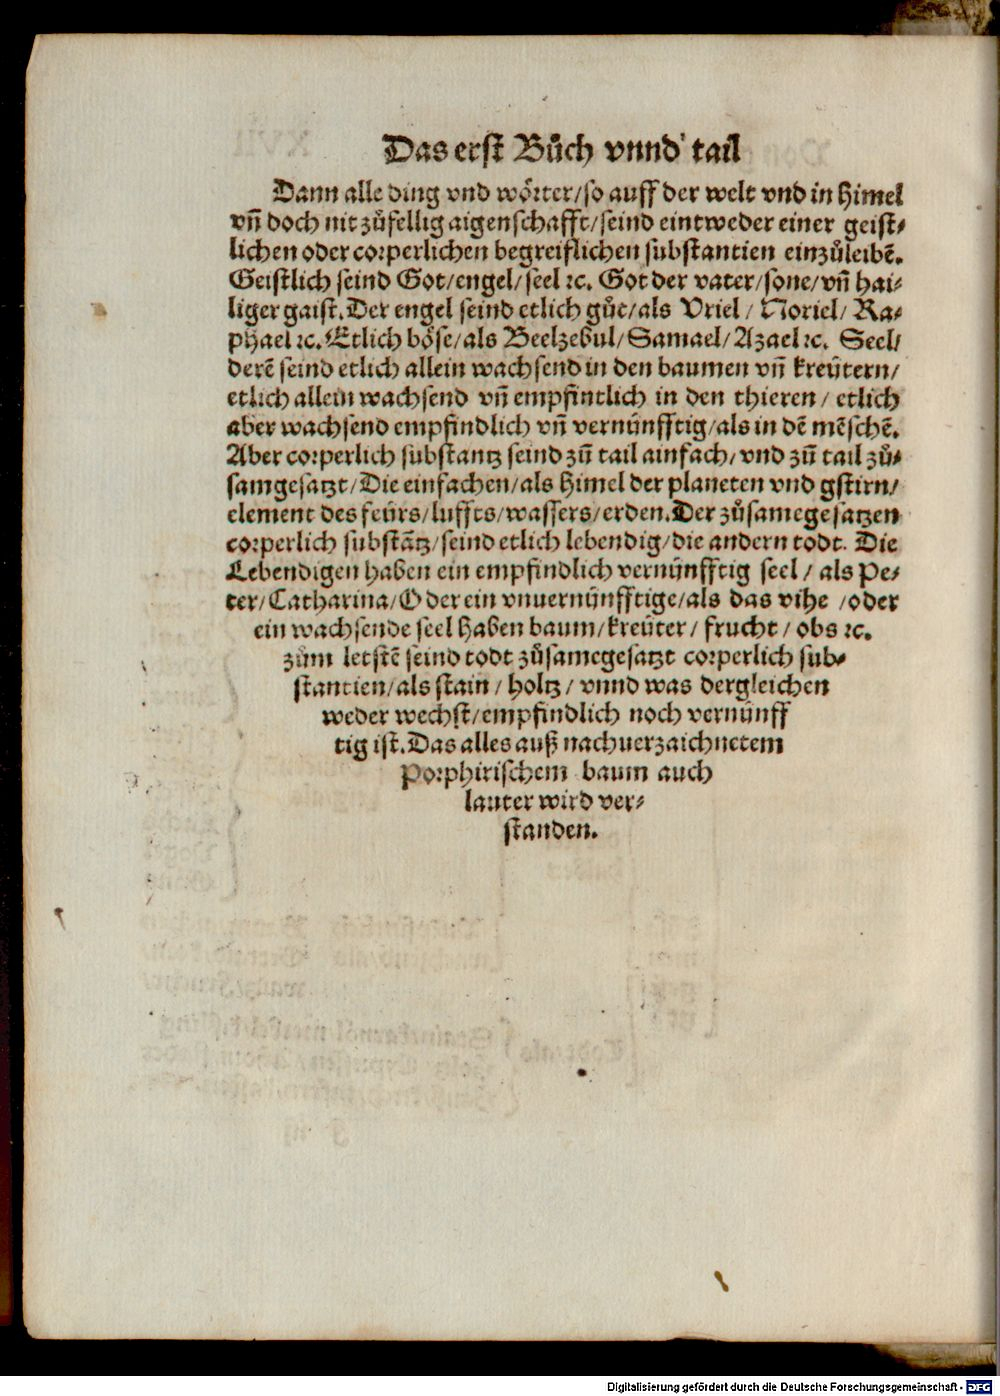 Das erst Bůch vnnd tail
Dann alle ding vnd wörter/so auff der welt vnd in Himel
vñ doch nit zůfellig aigenschafft/seind eintweder einer geist⸗
lichen oder corperlichen begreiflichen substantien einzůleibẽ.
Geistlich seind Got/engel/seel ꝛc. Got der vater/sone/vñ hai⸗
liger gaist. Der engel seind etlich gůt/als Vriel/ Noriel/ Ra⸗
phael ꝛc. Etlich böse/als Beelzebul/Samael/Azael ꝛc. Seel/
derẽ seind etlich allein wachsend in den baumen vñ kreütern/
etlich allein wachsend vñ empfintlich in den thieren/ etlich
aber wachsend empfindlich vñ vernünfftig/als in dẽ mẽschẽ.
Aber corperlich substantz seind zũ tail ainfach/vnd zũ tail zů⸗
samgesatzt/Die einfachen/als Himel der planeten vnd gstirn/
element des feürs/luffts/wassers/erden. Der zůsamegesatzen
corperlich substãtz/seind etlich lebendig/die andern todt. Die
Lebendigen haben ein empfindlich vernünfftig seel/ als Pe⸗
ter/Catharina/Oder ein vnuernünfftige/als das vihe /oder
ein wachsende seel haben baum/kreüter/ frucht/ obs ꝛc.
zům letstẽ seind todt zůsamegesatzt corperlich sub⸗
stantien/als stain/ holtz/ vnnd was dergleichen
weder wechst/empfindlich noch vernünff
tig ist. Das alles auß nachuerzaichnetem
Porphirischem baum auch
lauter wird ver⸗
standen.
Digitalisierung gefördert durch die Deutsche Forschungsgemeinschaft - DFG